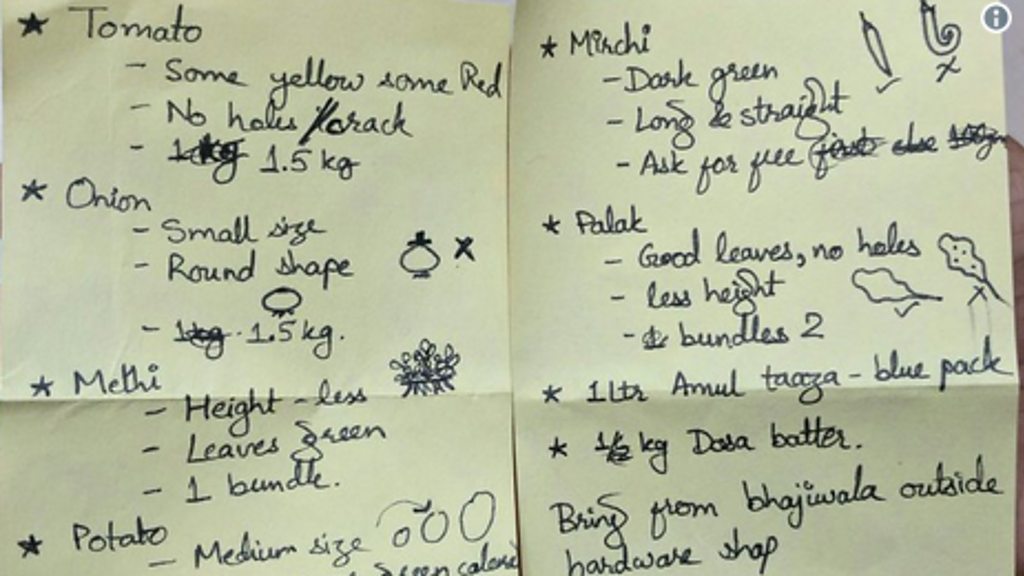 ★ Tomato
- Some yellow some Red
- No holes / crack
- 1.5 kg
★ Onion
- Small size
- Round shape
- 1.5 kg.
★ Methi
- Height - less
- Leaves Green
- 1 bundle.
★ Potato
- Medium size
Green colored
★ Mirchi
- Dark green
- Long & straight
- Ask for free
★ Palak
- Good leaves, no holes
- less height
- bundles 2
★ 1 Ltr Amul taaza - blue pack
★ kg Dosa batter.
Bring from bhajiwala outside
hardware shop